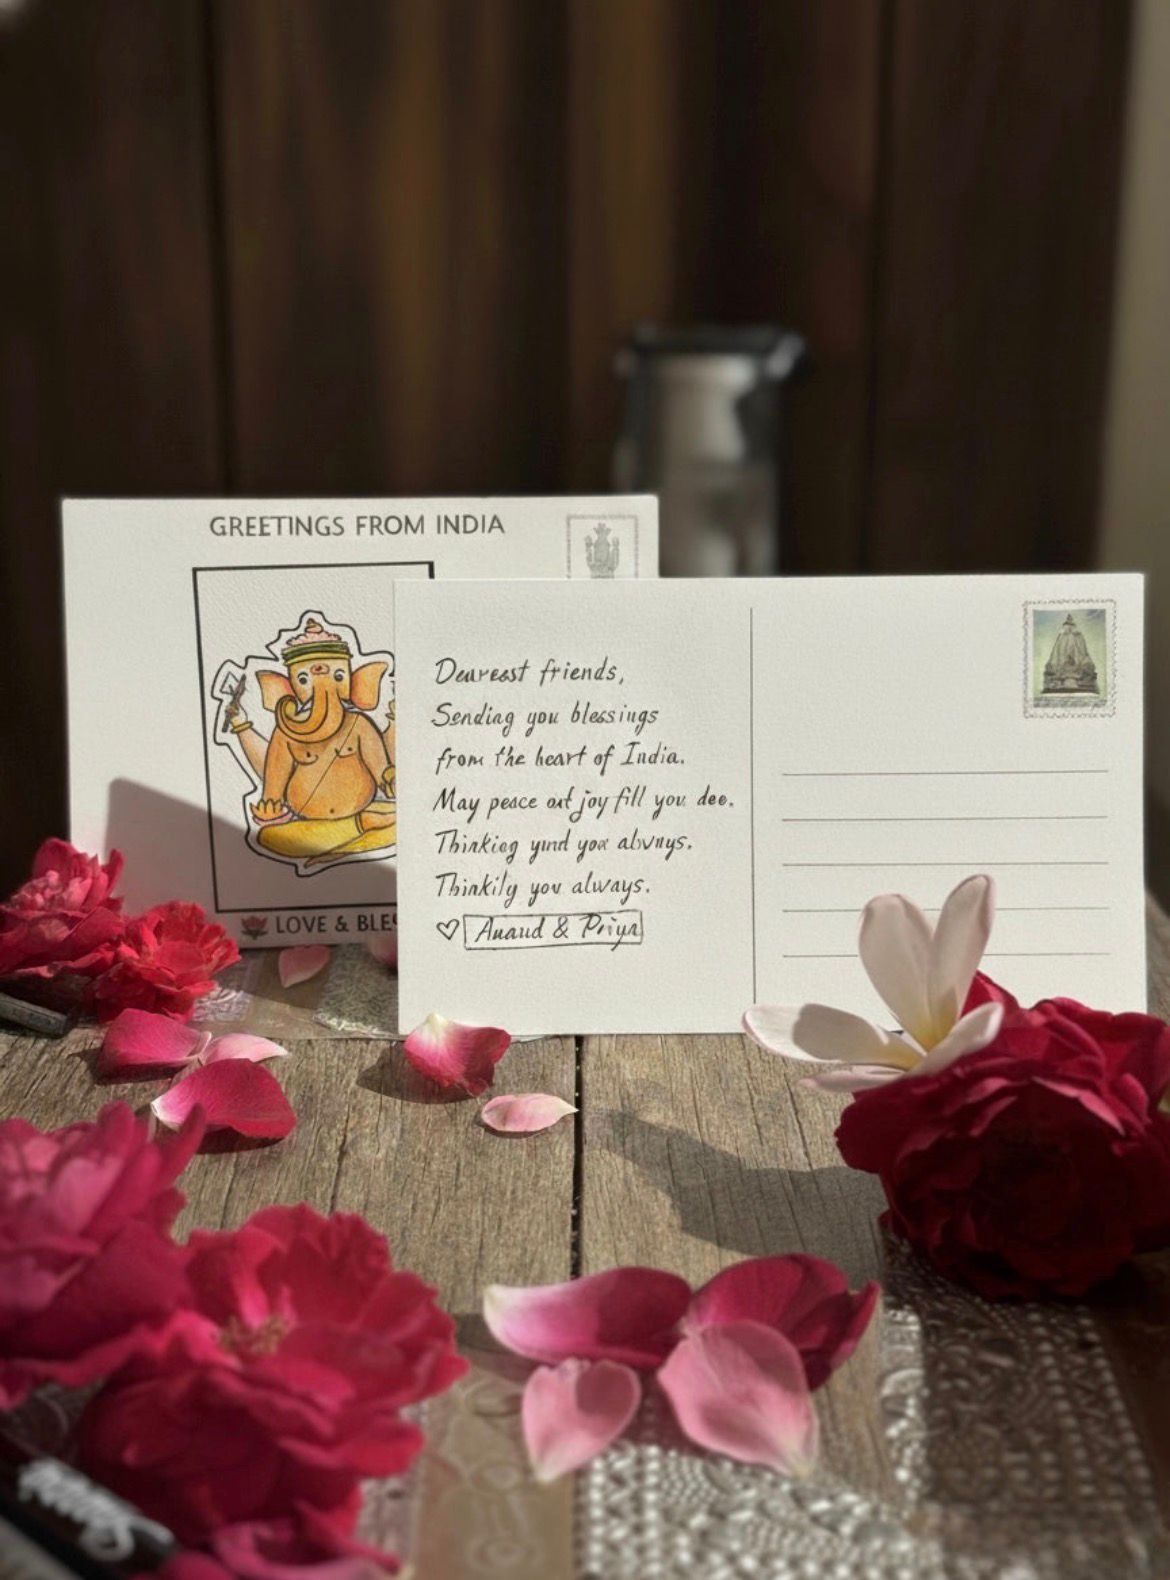 GREETINGS FROM INDIA
LOVE & BLES
Dearest friends,
Sending you blessings
from the heart of India.
May peace ont joy fill you dee.
Thinkieg yınd you always.
Thinkily you always.
Anaud & Priya